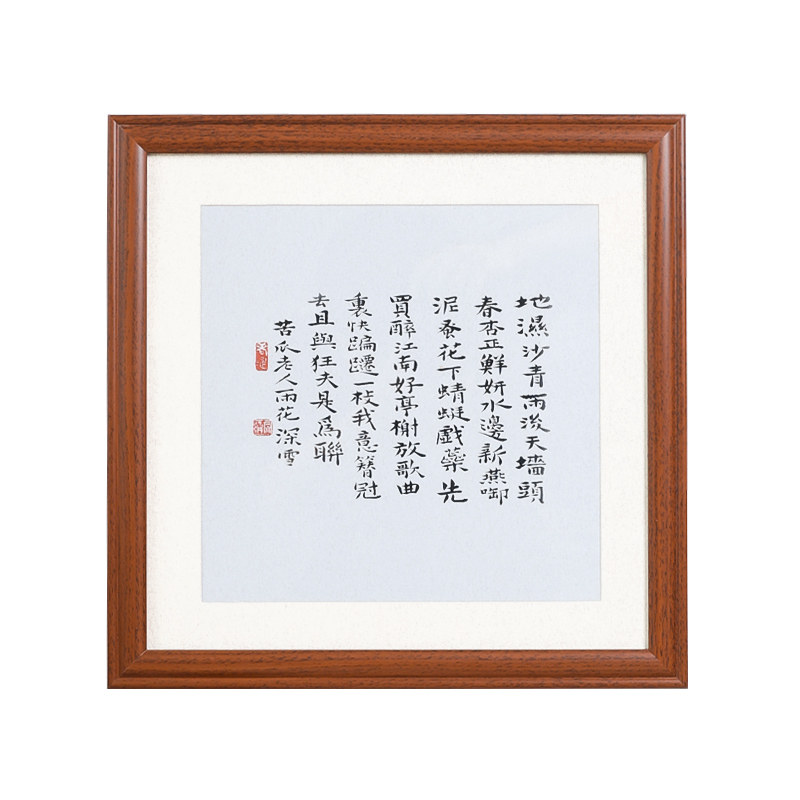 地濕沙青雨後天墻頭
春杏正鮮妍水邊新燕啣
泥蚕花下蜻蜓戲藥先
買醉江南好亭榭放歌曲
裏快蹁躚一枝我意簪冠
去且與狂夫是爲聯
苦瓜老人雨花深雪